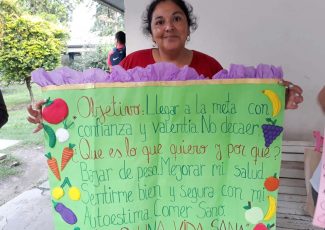 Objetivo: Llegar a la meta con
confianza y valentía. No decaer.
¿Que es lo que quiero y por qué?
Bajar de peso. Mejorar mi salud
Sentirme bien y segura con mi
Autoestima. Comer Sano.
UNA VIDA SANA